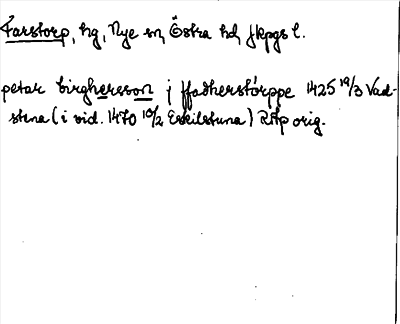 Farstorp, hg, Nye sn, Östra hd, Jkpgs l.
petar birghersson j ffadherstorppe 1425 19/3 Vad-
stena (i vid. 1470 10/2 Eskilstuna) RAp orig.